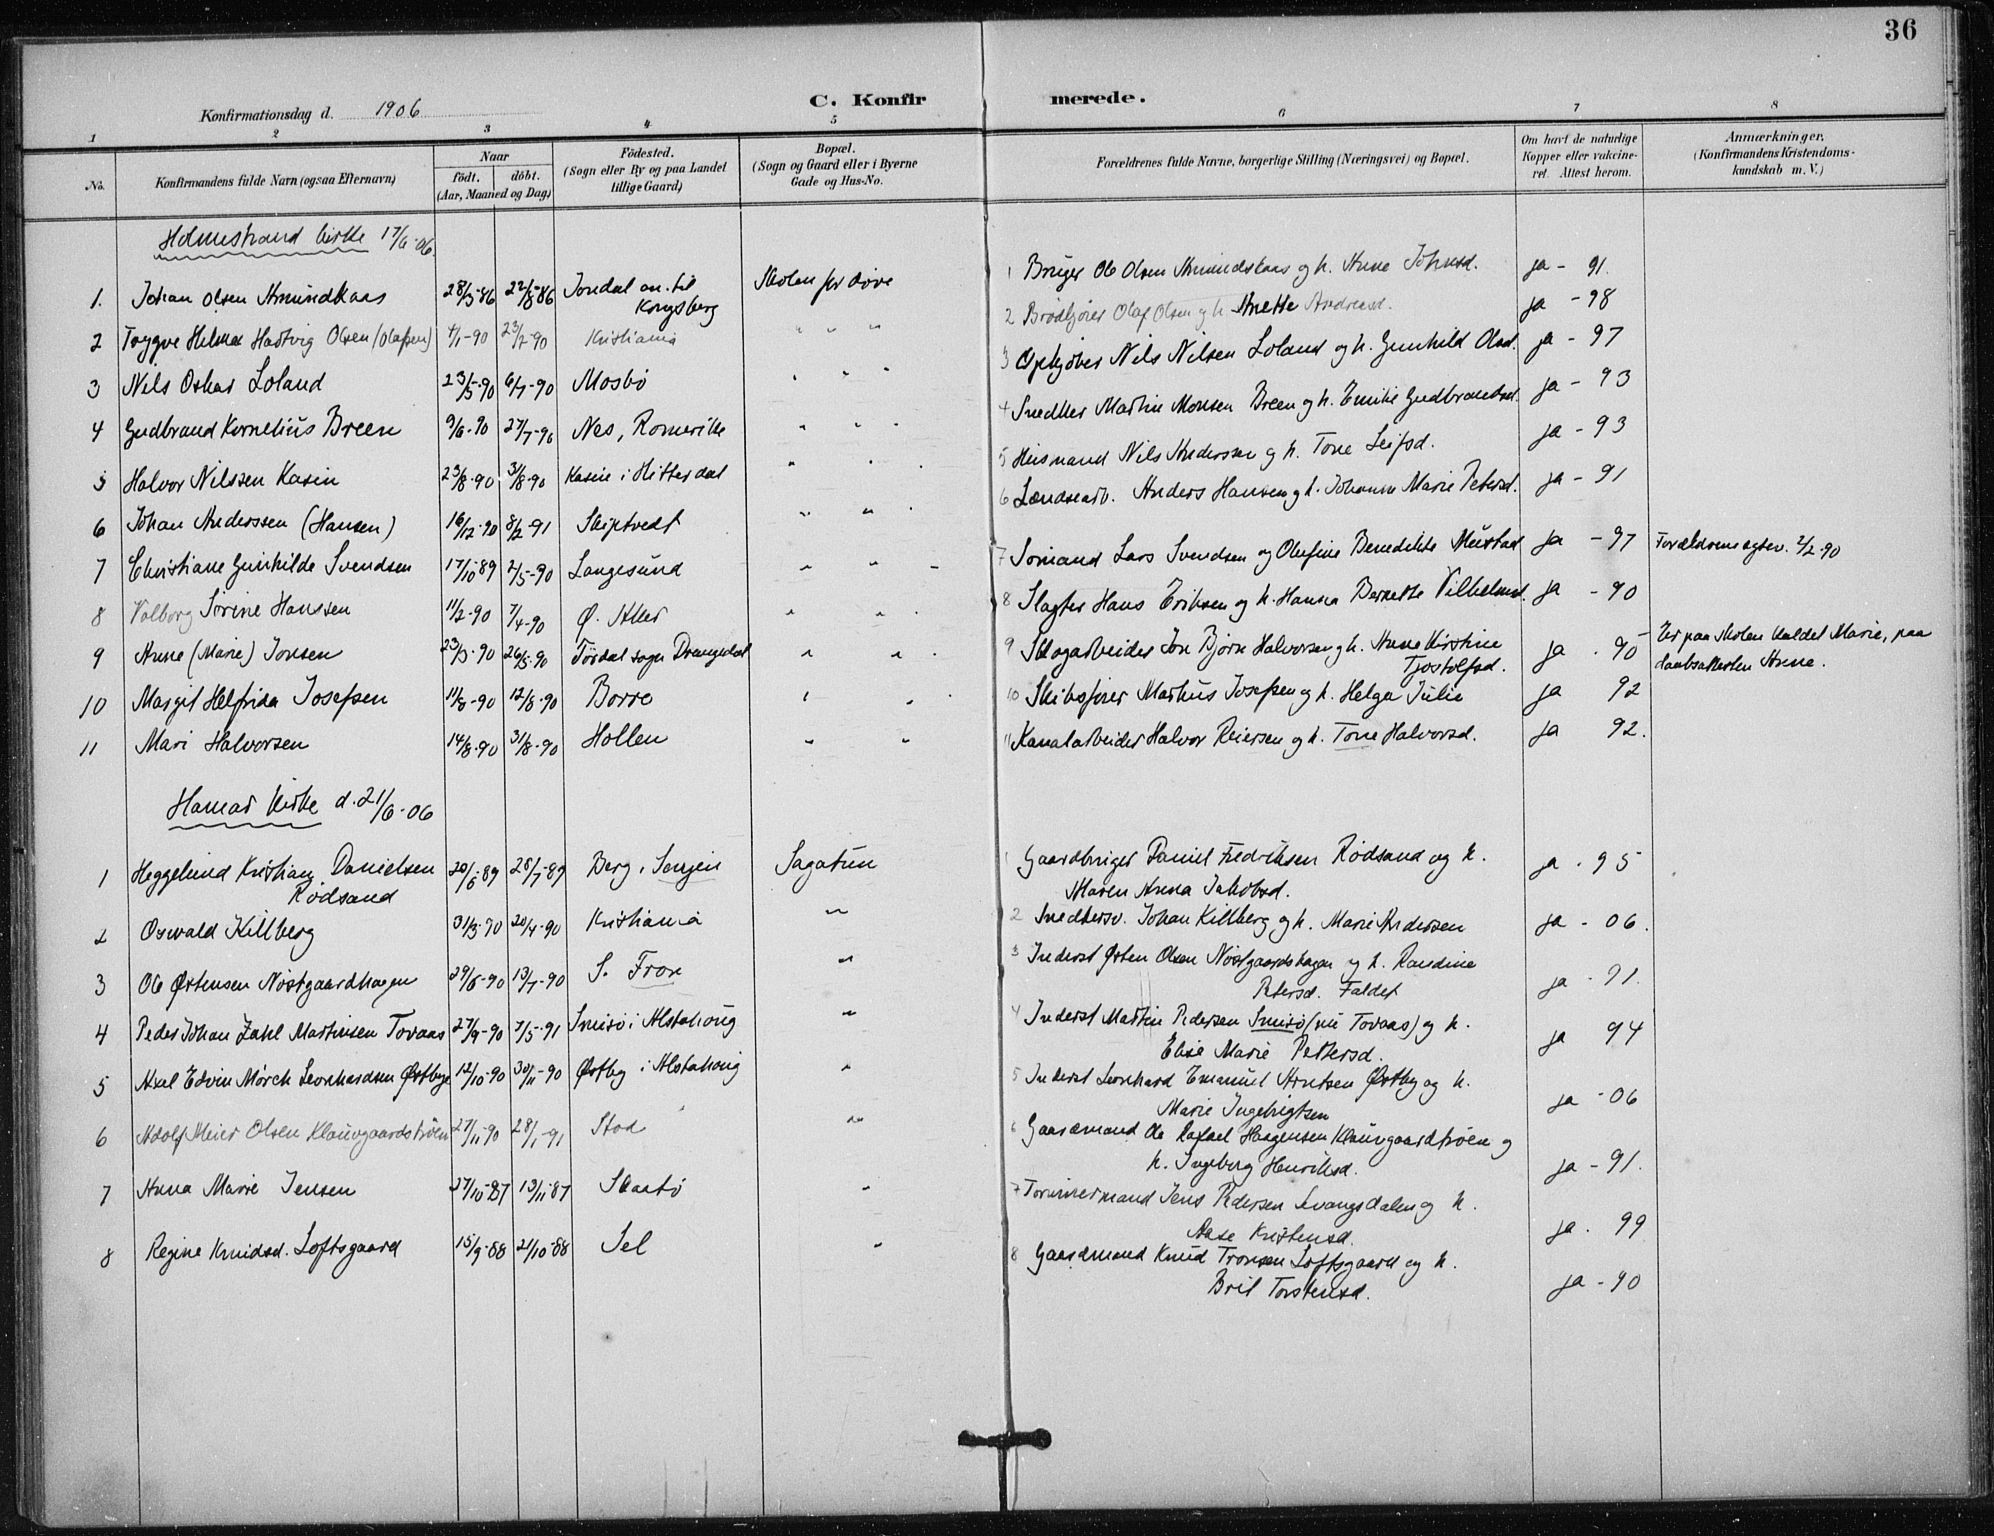 36
C. Konfirmerede.
Konfirmationsdag d. 1906
1 2 3 4 5 6 7 8
No.
Konfirmandens fulde Navn (ogsaa Efternavn)
Naar
födt. döbt.
(Aar, Maaned og Dag)
Födested.
(Sogn eller By og paa Landet
tillige Gaard)
Bopæl.
(Sogn og Gaard eller i Byerne
Gade og Hus-No.
Forældrenes fulde Navne, borgerlige Stilling (Næringsvei) og Bopæl.
Om havt de naturlige
Kopper eller vakcine-
ret. Attest herom.
Anmærkninger.
(Konfirmandens Kristendoms-
kundskab m. V.)
Holmestrand kirke 17/6-06.
1. Johan Olsen Amundskaas 28/5-86 22/8-86 Jondal an. til Kongsberg Skolen for døve 1 Bruger Ole Olsen Amundskaas og h. Anne Johnsd. ja - 91.
2 Trygve Helmer Hartvig Olsen (Olafsen) 4/1-90 23/2-90 Kristiania " " " 2 Brødkjører Olaf Olsen og h. Anette Andreasd. ja - 98
3 Nils Oskar Loland 23/5-90 6/7-90 Mosbö " " " 3 Opkjøber Nils Nilsen Loland og h. Gunhild Olsd. ja - 97
4 Gudbrand Kornelius Breen 9/6-90 27/7-90 Nes, Romerike " " " 4 Snedker Martin Monsen Breen og h. Emilie Gudbrandsd. ja - 93
5 Halvor Nilssen Kasin 23/8-90 3/8-90 Kasin i Hitterdal " " " 5 Husmand Nils Anderssen og h. Tone Leifsd. ja - 93
6 Johan Anderssen (Hansen) 16/12-90 8/2-91 Skiptvedt " " " 6 Lændsearb. Anders Hansen og h. Johanne Marie Petersd. ja - 91
7 Christiane Gunhilde Svendsen 17/10-89 2/5-90 Langesund " " - 7 Sömand Lars Svendsen og Olufine Benedikte Mustad ja - 97 Forældrene egtev. 2/2-90
8 Valborg Sörine Hanssen 11/2-90 7/4-90 Ø. Aker " " 8 Slagter Hans Eriksen og h. Hanna Bernette Vilhelmsd. ja - 90
9 Anne (Marie) Jonsen 23/3-90 26/5-90 Tördal sogn Drangedal " " . 9 Skogarbeider Jon Björn Halvorsen og h. Anne Kirstine Tjostolfsd. ja . 90 Er paa skolen kaldet Marie, paa
daabsattesten Anne.
10 Margit Helfrida Josefsen 11/6-90 12/8-90 Borre " " 10 Skibsfører Markus Josefsen og h. Helga Julie ja 92
11 Mari Halvorsen 14/8-90 31/8-90 Hollen " " 11 Kanalarbeider Halvor Reiersen og h. Tone Halvorsd. ja 92.
Hamar Kirke d. 21/6-06
1 Heggelund Kristian Danielsen Rödsand 20/6-89 28/7-89 Berg i Senjen Sagatun 1 Gaardbruger Daniel Fredriksen Rödsand og h.
Maren Anna Jakobsd. ja . 95
2 Oswald Killberg 31/3-90 20/4-90 Kristiania " 2 Snedkersv. Johan Killberg og h. Marie Andersen ja - 06.
3 Ole Østensen Nöstgaardhagen 29/6-90 13/7-90 S. Fron " 3 Inderst Østen Olsen Nöstgaardshagen og h. Randine
Petersd. Faldet ja - 91.
4 Peder Johan Zahl Martinsen Tovaas 27/9-90 7/5-91 Smisö i Alstahoug " 4 Inderst Martin Pedersen Smisö (nu Tovaas) og h.
Elise Marie Pettersd. ja 94
5 Axel Edvin Mörch Leonhardsen Østbye 12/10-90 30/11-90 Østby i Alstahoug " 5 Inderst Leonhard Emanuel Arntsen Østby og h.
Marie Ingebrigtsen ja - 06
6 Adolf Meier Olsen Klauvgaardströen 27/11-90 28/1-91 Stod " 6 Gaardmand Ole Rafael Haagensen Klauvgaardtröen og
h. Ingeborg Henriksd. ja - 91.
7 Anna Marie Jensen 27/10-87 13/11-87 Skaatö " 7 Tömmermand Jens Pedersen Levangsdalen og h.
Aase Kristensd. ja . 99
8 Regine Knudsd. Loftsgaard 15/9-88 21/10-88 Sel " 8 Gaardmand Knud Tronsen Loftsgaard og h.
Brit Torstensd. ja - 90